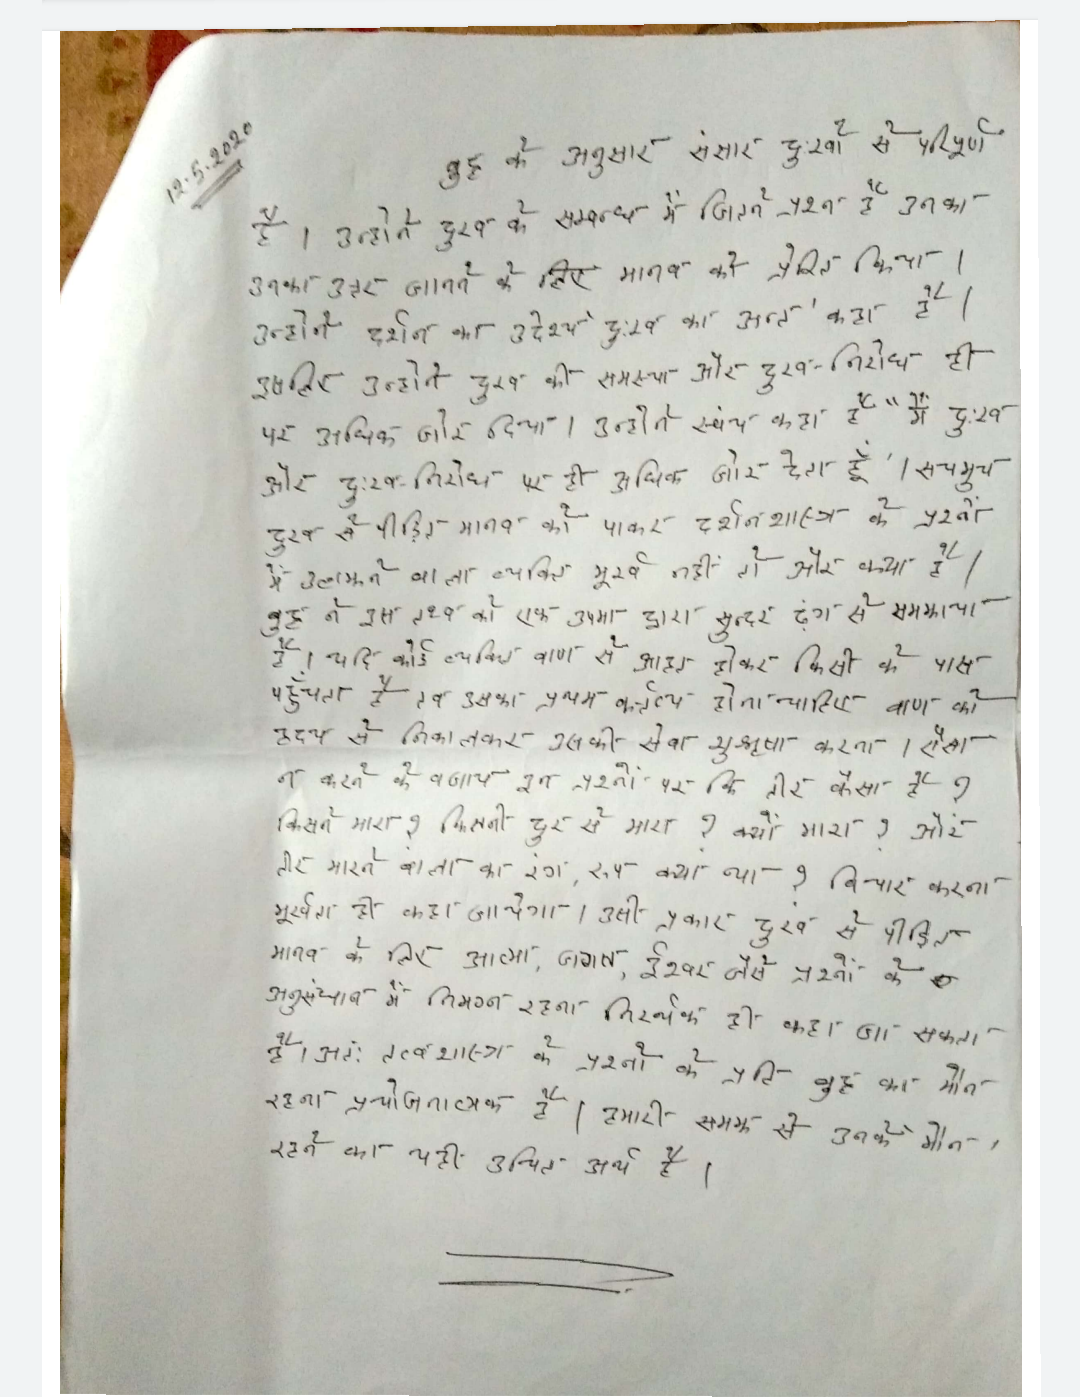 12.5.2020
बुद्ध के अनुसार संसार दुःखों से परिपूर्ण
है । उन्होंने दुख के सम्बन्ध में जितने प्रश्न हैं उनका
उनका उत्तर जानने के लिए मानव को प्रेरित किया ।
उन्होंने दर्शन का उद्देश्य 'दुःख का अन्त' कहा है ।
इसलिए उन्होंने दुख की समस्या और दुख-निरोध ही
पर अधिक जोर दिया । उन्होंने स्वंय कहा है "मैं दुःख
और दुःख-निरोध पर ही अधिक जोर देता हूँ' । सचमुच
दुख से पीड़ित मानव को पाकर दर्शनशास्त्र के प्रश्नों
में उलझने वाला व्यक्ति मूर्ख नहीं तो और क्या है ।
बुद्ध ने इस तथ्य को एक उपमा द्वारा सुन्दर ढ़ंग से समझाया
है । यदि कोई व्यक्ति वाण से आहत होकर किसी के पास
पहुँचता है तब उसका प्रथम कर्तव्य होना चाहिए वाण को
हृदय से निकालकर उसकी सेवा सुश्रुषा करना । ऐसा
न करने के बजाय इन प्रश्नों पर कि तीर कैसा है ?
किसने मारा ? कितनी दुर से मारा ? क्यों मारा ? और
तीर मारने वाला का रंग, रूप क्या था ? विचार करना
मूर्खता ही कहा जायेगा । उसी प्रकार दुख से पीड़ित
मानव के लिए आत्मा, जगत, ईश्वर जैसे प्रश्नों के
अनुसंधान में निमग्न रहना निरर्थक ही कहा जा सकता
है । अतः तत्वशास्त्र के प्रश्नों के प्रति बुद्ध का मौन
रहना प्रयोजनात्मक है । हमारी समझ से उनके मौन
रहने का यही उचित अर्थ है ।